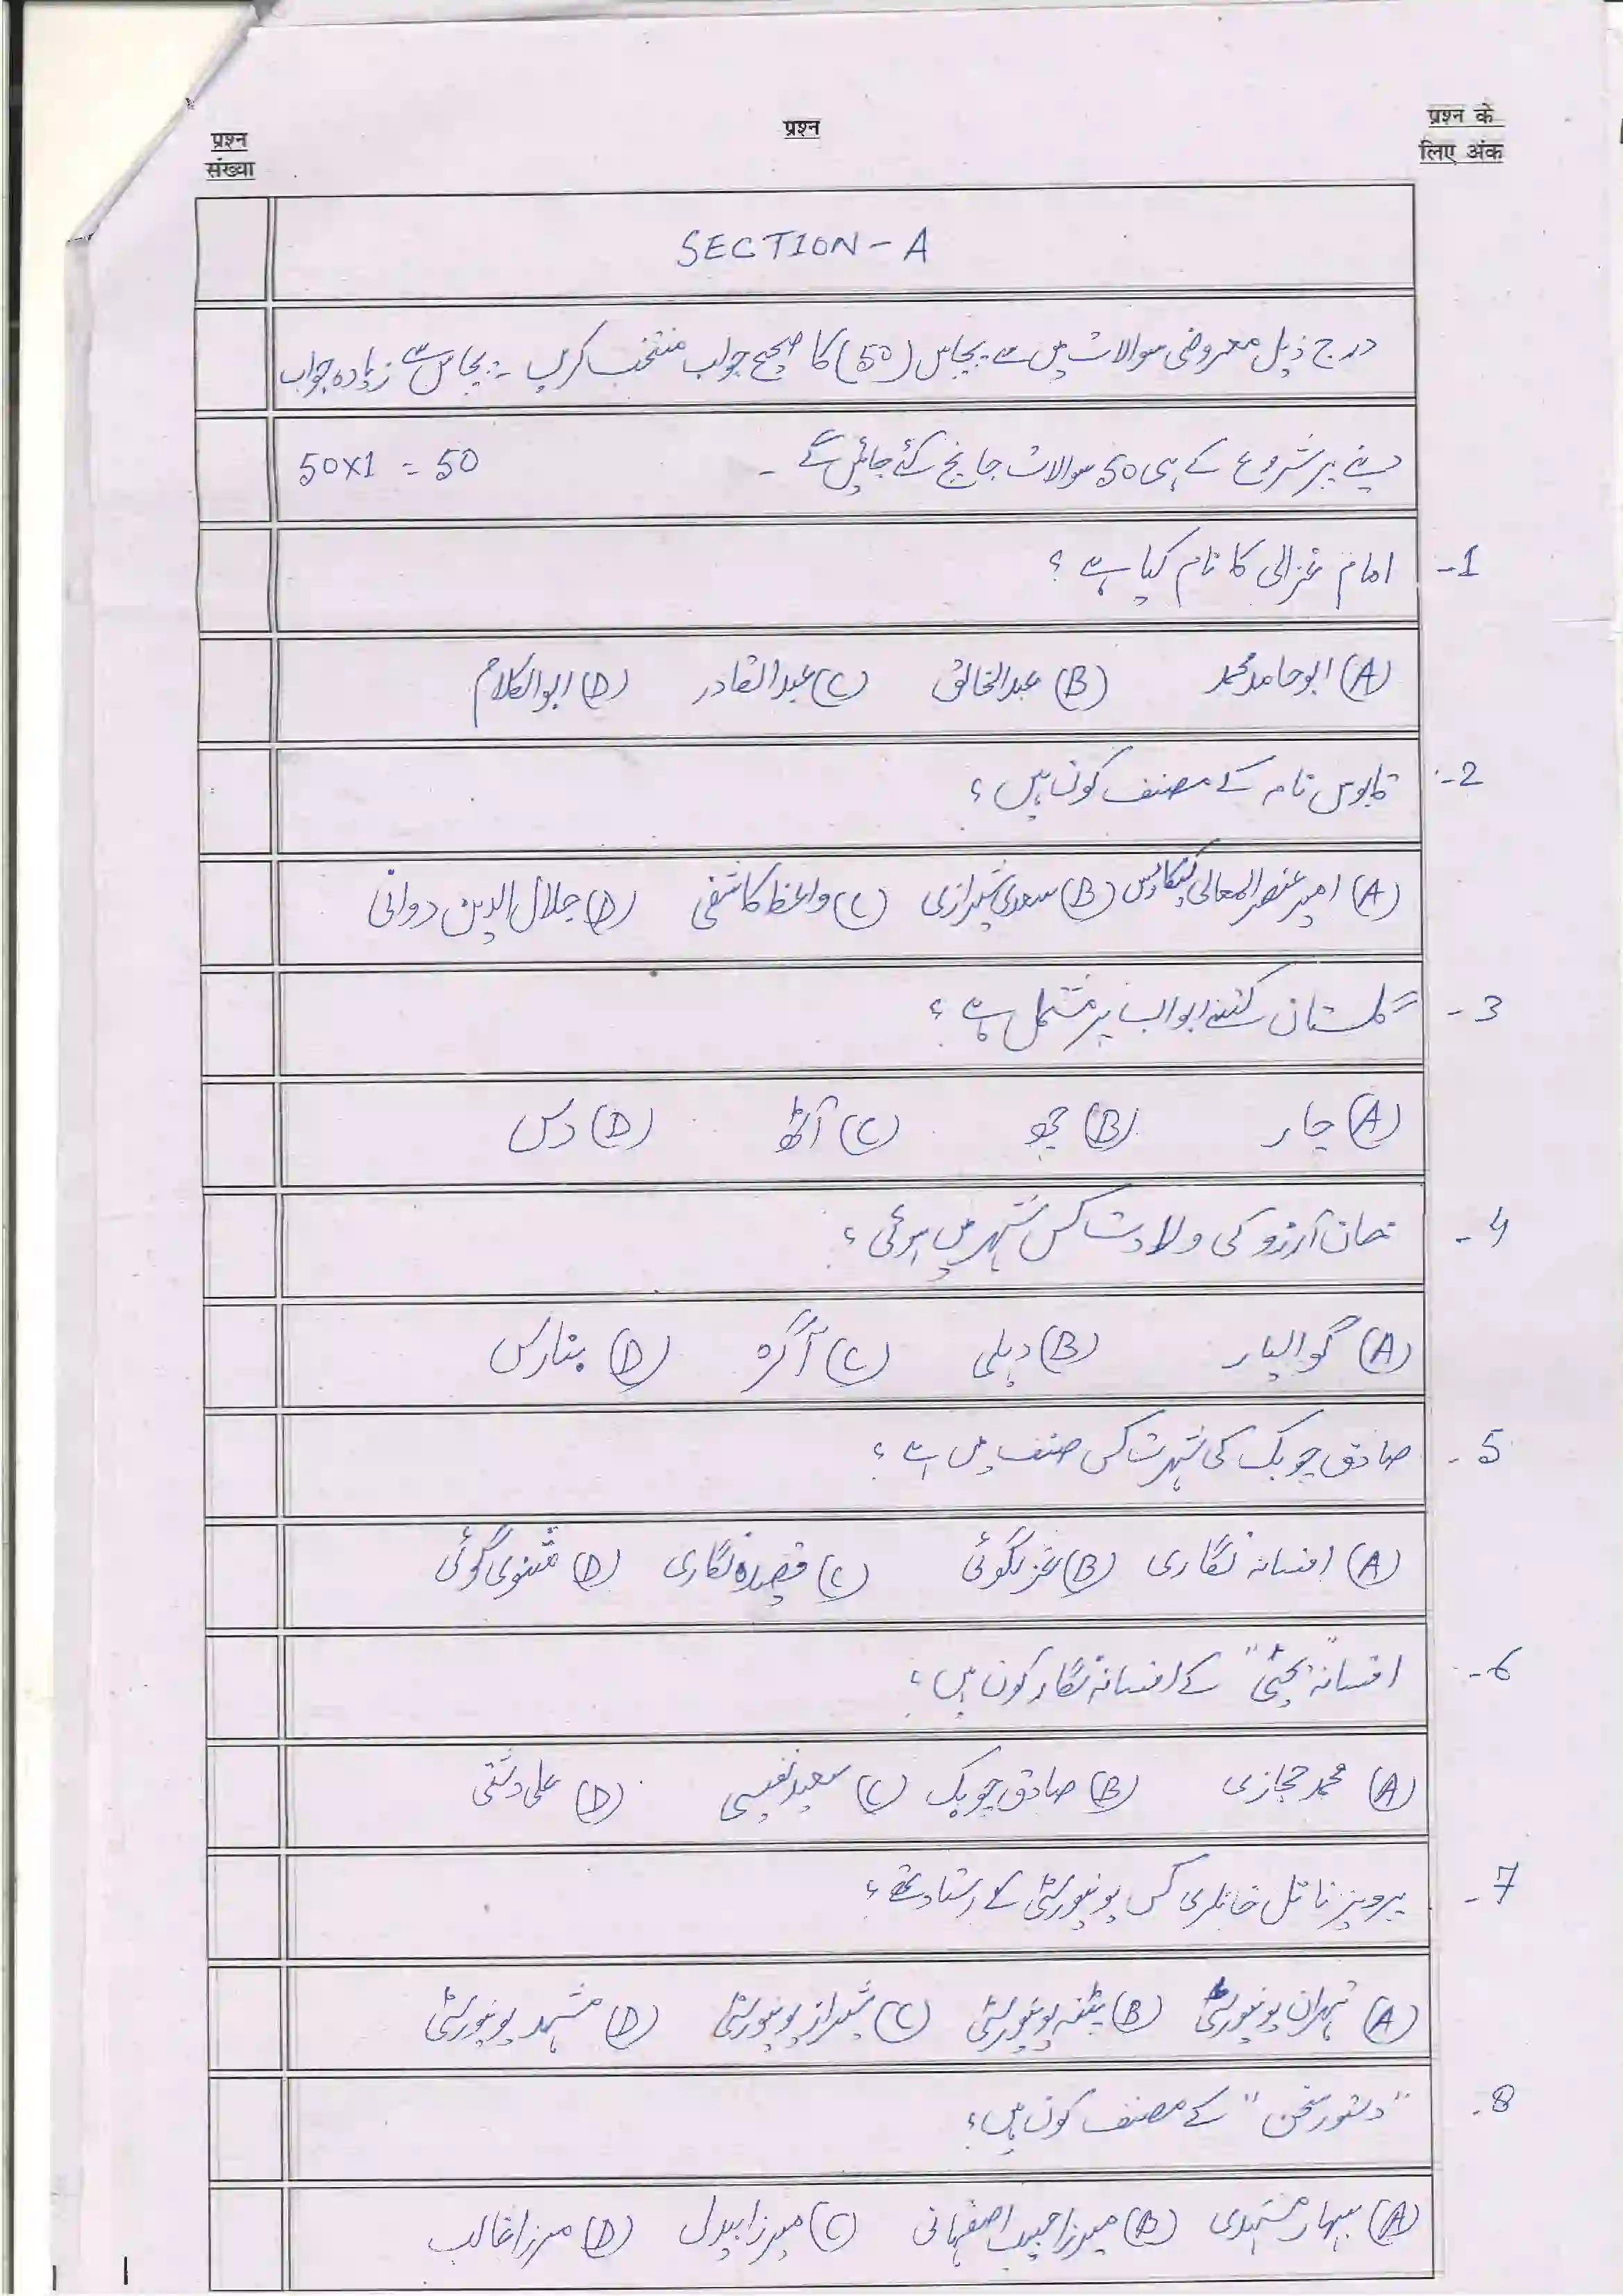 प्रश्न संख्या
प्रश्न
प्रश्न के लिए अंक
SECTION - A
درج ذیل معروضی سوالات میں سے پچاس (50) کا صحیح جواب منتخب کریں ۔ پچاس سے زیادہ جواب
دینے پر شروع کے ہی 50 سوالات جانچ کئے جائیں گے ۔ 50x1 = 50
1- امام غزالی کا نام کیا ہے ؟
(A) ابو حامد محمد (B) عبدالخالق (C) عبدالقادر (D) ابوالکلام
2- قابوس نامہ کے مصنف کون ہیں ؟
(A) امیر عنصرالمعالی کیکاؤس (B) سعدی شیرازی (C) واعظ کاشفی (D) جلال الدین دوانی
3- گلستان کتنے ابواب پر مشتمل ہے ؟
(A) چار (B) چھ (C) آٹھ (D) دس
4- خان آرزو کی ولادت کس شہر میں ہوئی ؟
(A) گوالیار (B) دہلی (C) آگرہ (D) بنارس
5- صادق چوبک کی شہرت کس صنف میں ہے ؟
(A) افسانہ نگاری (B) غزلگوئی (C) قصیدہ نگاری (D) مثنوی گوئی
6- افسانہ "بچئی" کے افسانہ نگار کون ہیں ؟
(A) محمد حجازی (B) صادق چوبک (C) سعید نفیسی (D) علی دشتی
7- پرویز ناتل خانلری کس یونیورسٹی کے استاد تھے ؟
(A) تہران یونیورسٹی (B) پٹنہ یونیورسٹی (C) شیراز یونیورسٹی (D) مشہد یونیورسٹی
8- "دستور سخن" کے مصنف کون ہیں ؟
(A) بہار مشہدی (B) میرزا حبیب اصفہانی (C) میرزا بیدل (D) مرزا غالب